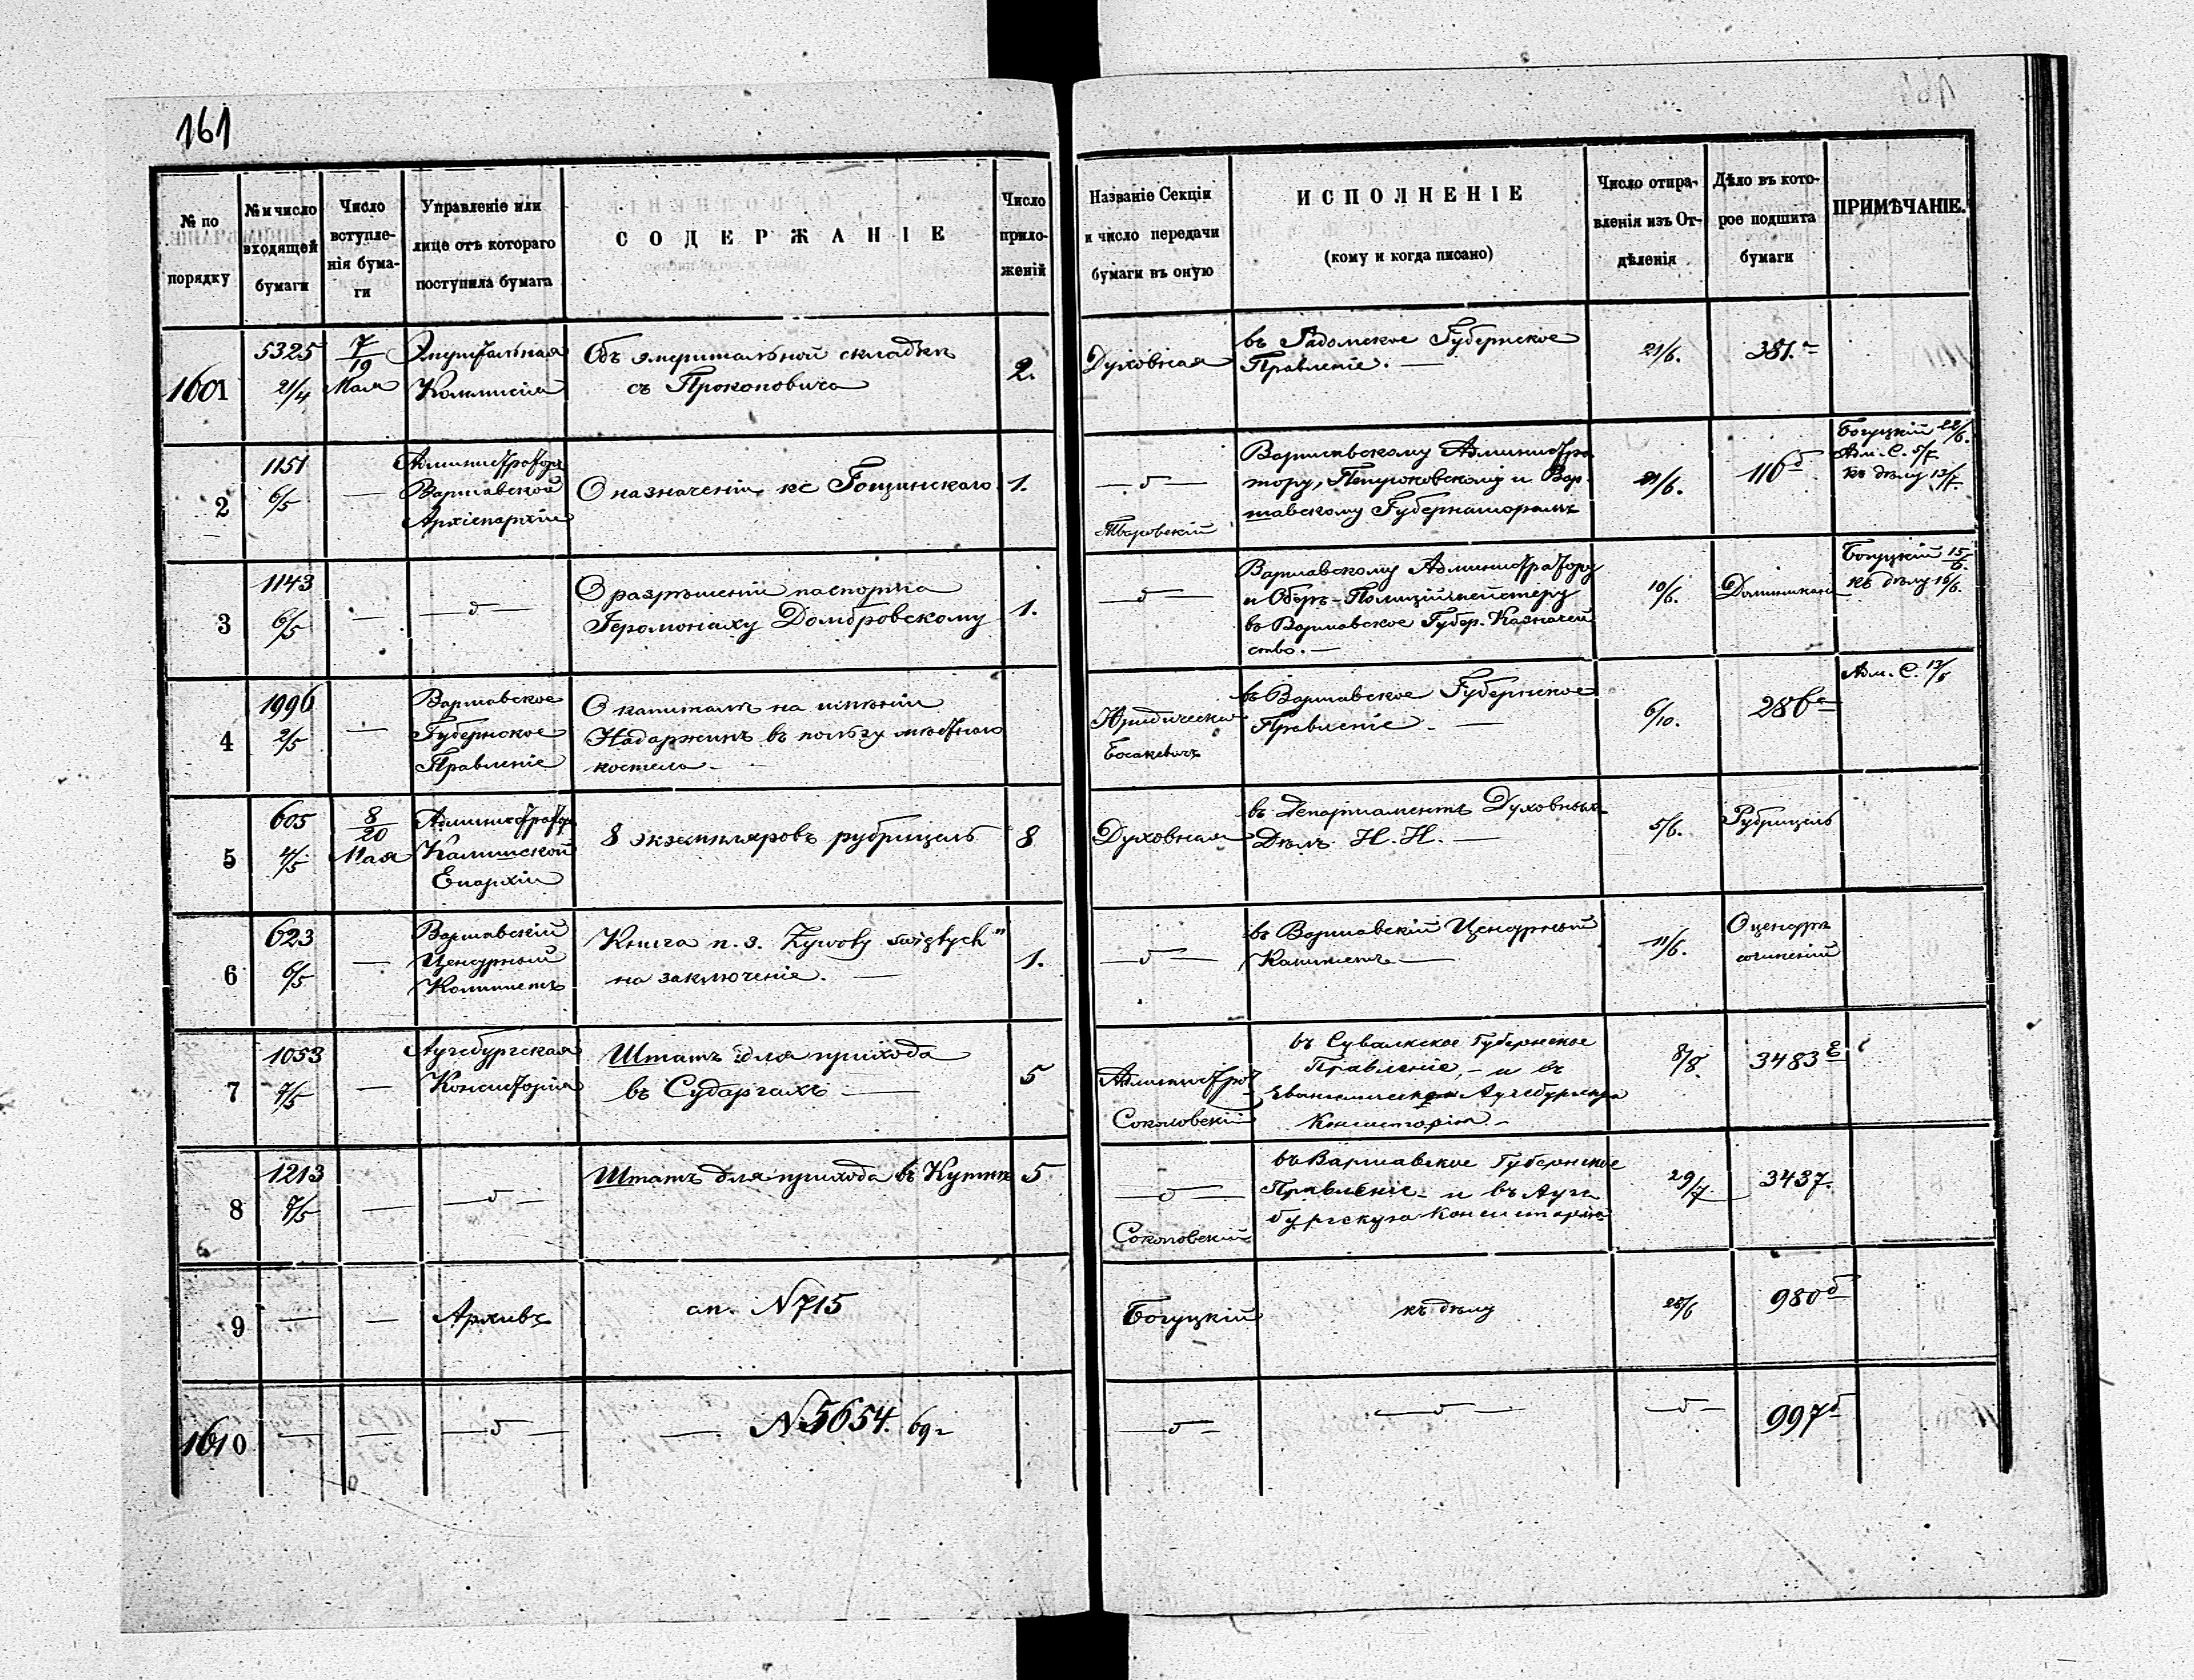 161
№ по порядку
№ и число входящей бумаги
Число вступле-нія бума-ги
Управленіе или лице отъ котораго поступила бумага
СОДЕРЖАНІЕ
Число прило-женій
Названіе Секціи и число передачи бумаги въ оную
ИСПОЛНЕНІЕ
(кому и когда писано)
Число отпра-вленія изъ От-дѣленія
Дѣло въ кото-рое подшита бумаги
ПРИМѢЧАНІЕ.
1601
5325
21/4
7/19 Мая
Эмеритальная
Коммисія
Объ эмеритальной складкѣ
съ Прокоповича
2.
Духовная
въ Радомское Губернское
Правленіе. —
21/6.
381.
2
1151
6/5
—
Администраторъ
Варшавской
Архіепархіи
О назначеніи кс Гощинскаго
1.
Варшавскому Администра
тору, и Вар
шавскому Губернаторамъ
21/6.
116б
Богуцкій 22/6.
Адм. С. 5/7
къ дѣлу 13/7.
3
1143
6/5
—
О разрѣшеніи паспорта
Іеромонаху Домбровскому
1.
Варшавскому Администратору
и Оберъ-Полиціймейстеру
въ Варшавское Губер. Казначей
ство. —
10/6.
Богуцкій 15/6.
къ дѣлу 16/6.
4
1996
2/5
—
Варшавское
Губернское
Правленіе
О капиталѣ на имѣніи
Надаржинъ въ пользу мѣстнаго
костела.
Юридическая
Босакевичъ
въ Варшавское Губернское
Правленіе. —
6/10.
286а
Адм. С.
5
605
4/5
8/20 Мая
Администраторъ
Калишской
Епархіи
8 экземпляровъ рубрицель
8
Духовная
въ Департаментъ Духовныхъ
Дѣлъ И. И. —
5/6.
Рубрицель
6
623
6/5
—
Варшавскій
Цензурный
Комитетъ
Книга п. з. Żywoty świętych"
на заключеніе. —
1.
въ Варшавскій Цензурный
Комитетъ —
11/6.
О цензурѣ
сочиненій
7
1053
7/5
—
Аугсбургская
Консисторія
Штатъ для прихода
въ Сударгахъ —
5
Администрат
Соколовскій
въ Сувалкское Губернское
Правленіе, — и въ
Аугсбургскую
Консисторію. —
8/8.
3483
8
1213
7/5
—
Штатъ для прихода въ Кутнѣ
5
Соколовскій
въ Варшавское Губернское
Правленіе — и въ Аугс
бургскую Консисторію
29/7
3437.
9
—
—
Архивъ
оп. N 715
Богуцкій
къ дѣлу
28/6
980б
1610
—
—
— N 5654.
997б